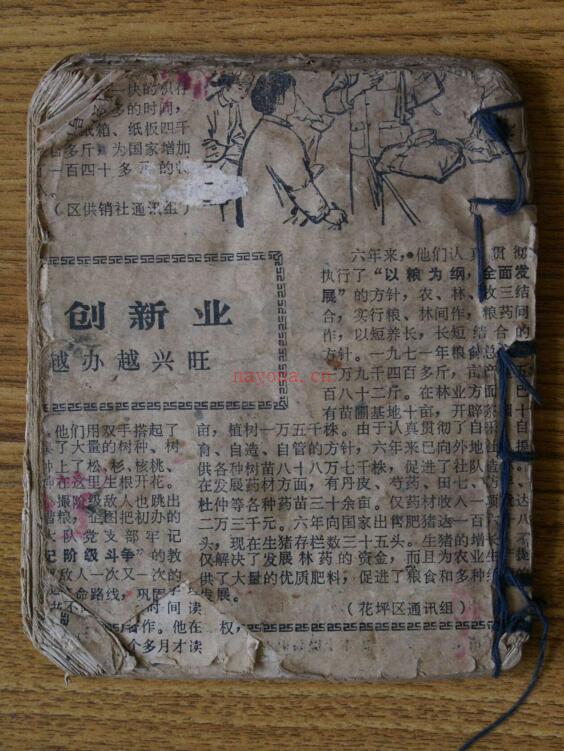 一块的积存
多的时间，
纸箱、纸板四千
多斤，为国家增加
一百四十多元的
（区供销社通讯组）
创新业
越办越兴旺
他们用双手搭起了
了大量的树种、树
上了松、杉、核桃、
在这里生根开花。
振阶级敌人也跳出
粮，企图把初办的
大队党支部牢记
记阶级斗争”的教
敌人一次又一次的
命路线，巩固
时间读
作。他在
个多月才读
六年来，他们认真贯彻
执行了“以粮为纲，全面发
展”的方针，农、林、牧三结
合，实行粮、林间作，粮药间
作，以短养长，长短结合的
方针。一九七一年粮食总
万九千四百多斤，亩产五
百八十二斤。在林业方面，已
有苗圃基地十亩，开辟
亩，植树一万五千株。由于认真贯彻了自采、自
育、自造、自管的方针，六年来已向外地出
供各种树苗八十八万七千株，促进了社队造
在发展药材方面，有丹皮、芍药、田七、
杜仲等各种药苗三十余亩。仅药材收入一项就达
二万三千元。六年向国家出售肥猪达一百六十八
头，现在生猪存栏数三十五头。生猪的增长，不
仅解决了发展林药的资金，而且为农业生产提
供了大量的优质肥料，促进了粮食和多种经
发展。
（花坪区通讯组）
权，
nayona.cn